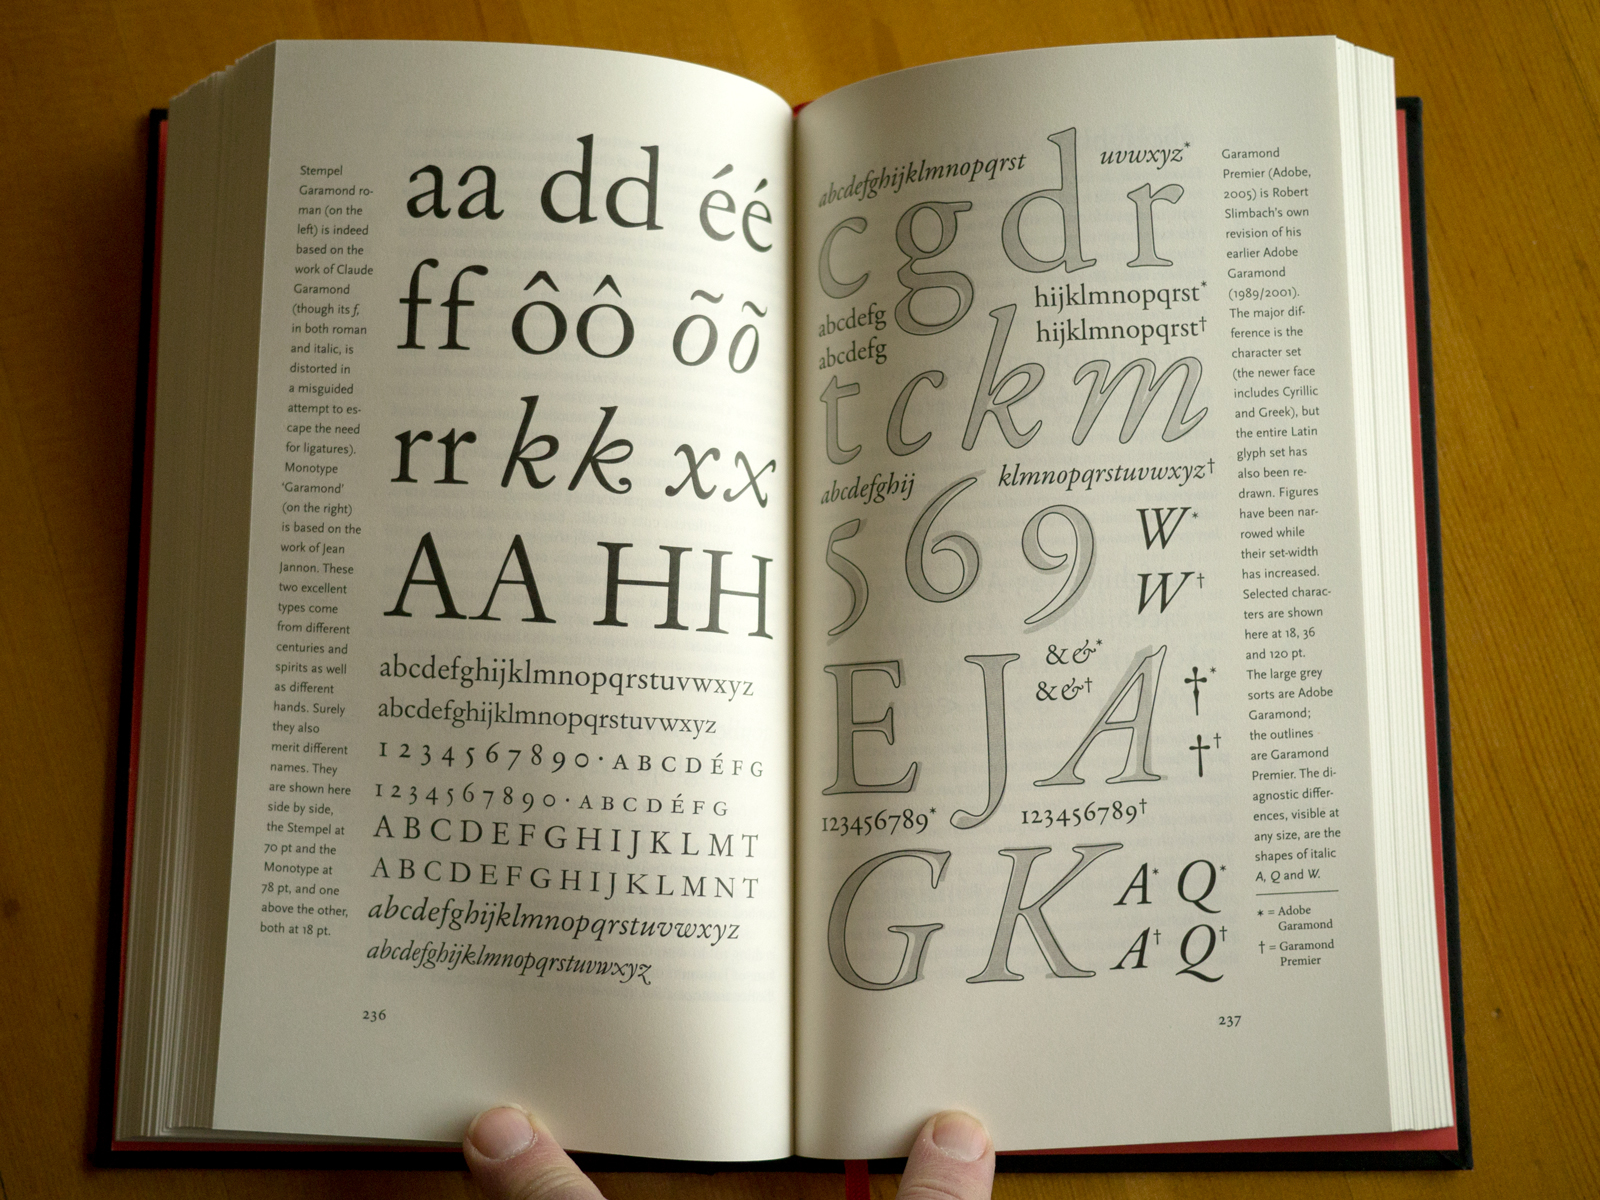 Stempel
Garamond ro-
man (on the
left) is indeed
based on the
work of Claude
Garamond
(though its f,
in both roman
and italic, is
distorted in
a misguided
attempt to es-
cape the need
for ligatures).
Monotype
‘Garamond’
(on the right)
is based on the
work of Jean
Jannon. These
two excellent
types come
from different
centuries and
spirits as well
as different
hands. Surely
they also
merit different
names. They
are shown here
side by side,
the Stempel at
70 pt and the
Monotype at
78 pt, and one
above the other,
both at 18 pt.
aa dd éé
ff ôô õõ
rr kk xx
AA HH
abcdefghijklmnopqrstuvwxyz
abcdefghijklmnopqrstuvwxyz
1234567890 · ABCDÉFG
1234567890 · ABCDÉFG
ABCDEFGHIJKLMT
ABCDEFGHIJKLMNT
abcdefghijklmnopqrstuvwxyz
abcdefghijklmnopqrstuvwxyz
236
abcdefghijklmnopqrst uvwxyz*
c g d r
abcdefg hijklmnopqrst*
abcdefg hijklmnopqrst†
t c k m
abcdefghij klmnopqrstuvwxyz†
5 6 9
W*
W†
&&*
&&†
E J A
†*
††
123456789* 123456789†
G K
A* Q*
A† Q†
Garamond
Premier (Adobe,
2005) is Robert
Slimbach’s own
revision of his
earlier Adobe
Garamond
(1989/2001).
The major dif-
ference is the
character set
(the newer face
includes Cyrillic
and Greek), but
the entire Latin
glyph set has
also been re-
drawn. Figures
have been nar-
rowed while
their set-width
has increased.
Selected charac-
ters are shown
here at 18, 36
and 120 pt.
The large grey
sorts are Adobe
Garamond;
the outlines
are Garamond
Premier. The di-
agnostic differ-
ences, visible at
any size, are the
shapes of italic
A, Q and W.
* = Adobe
Garamond
† = Garamond
Premier
237